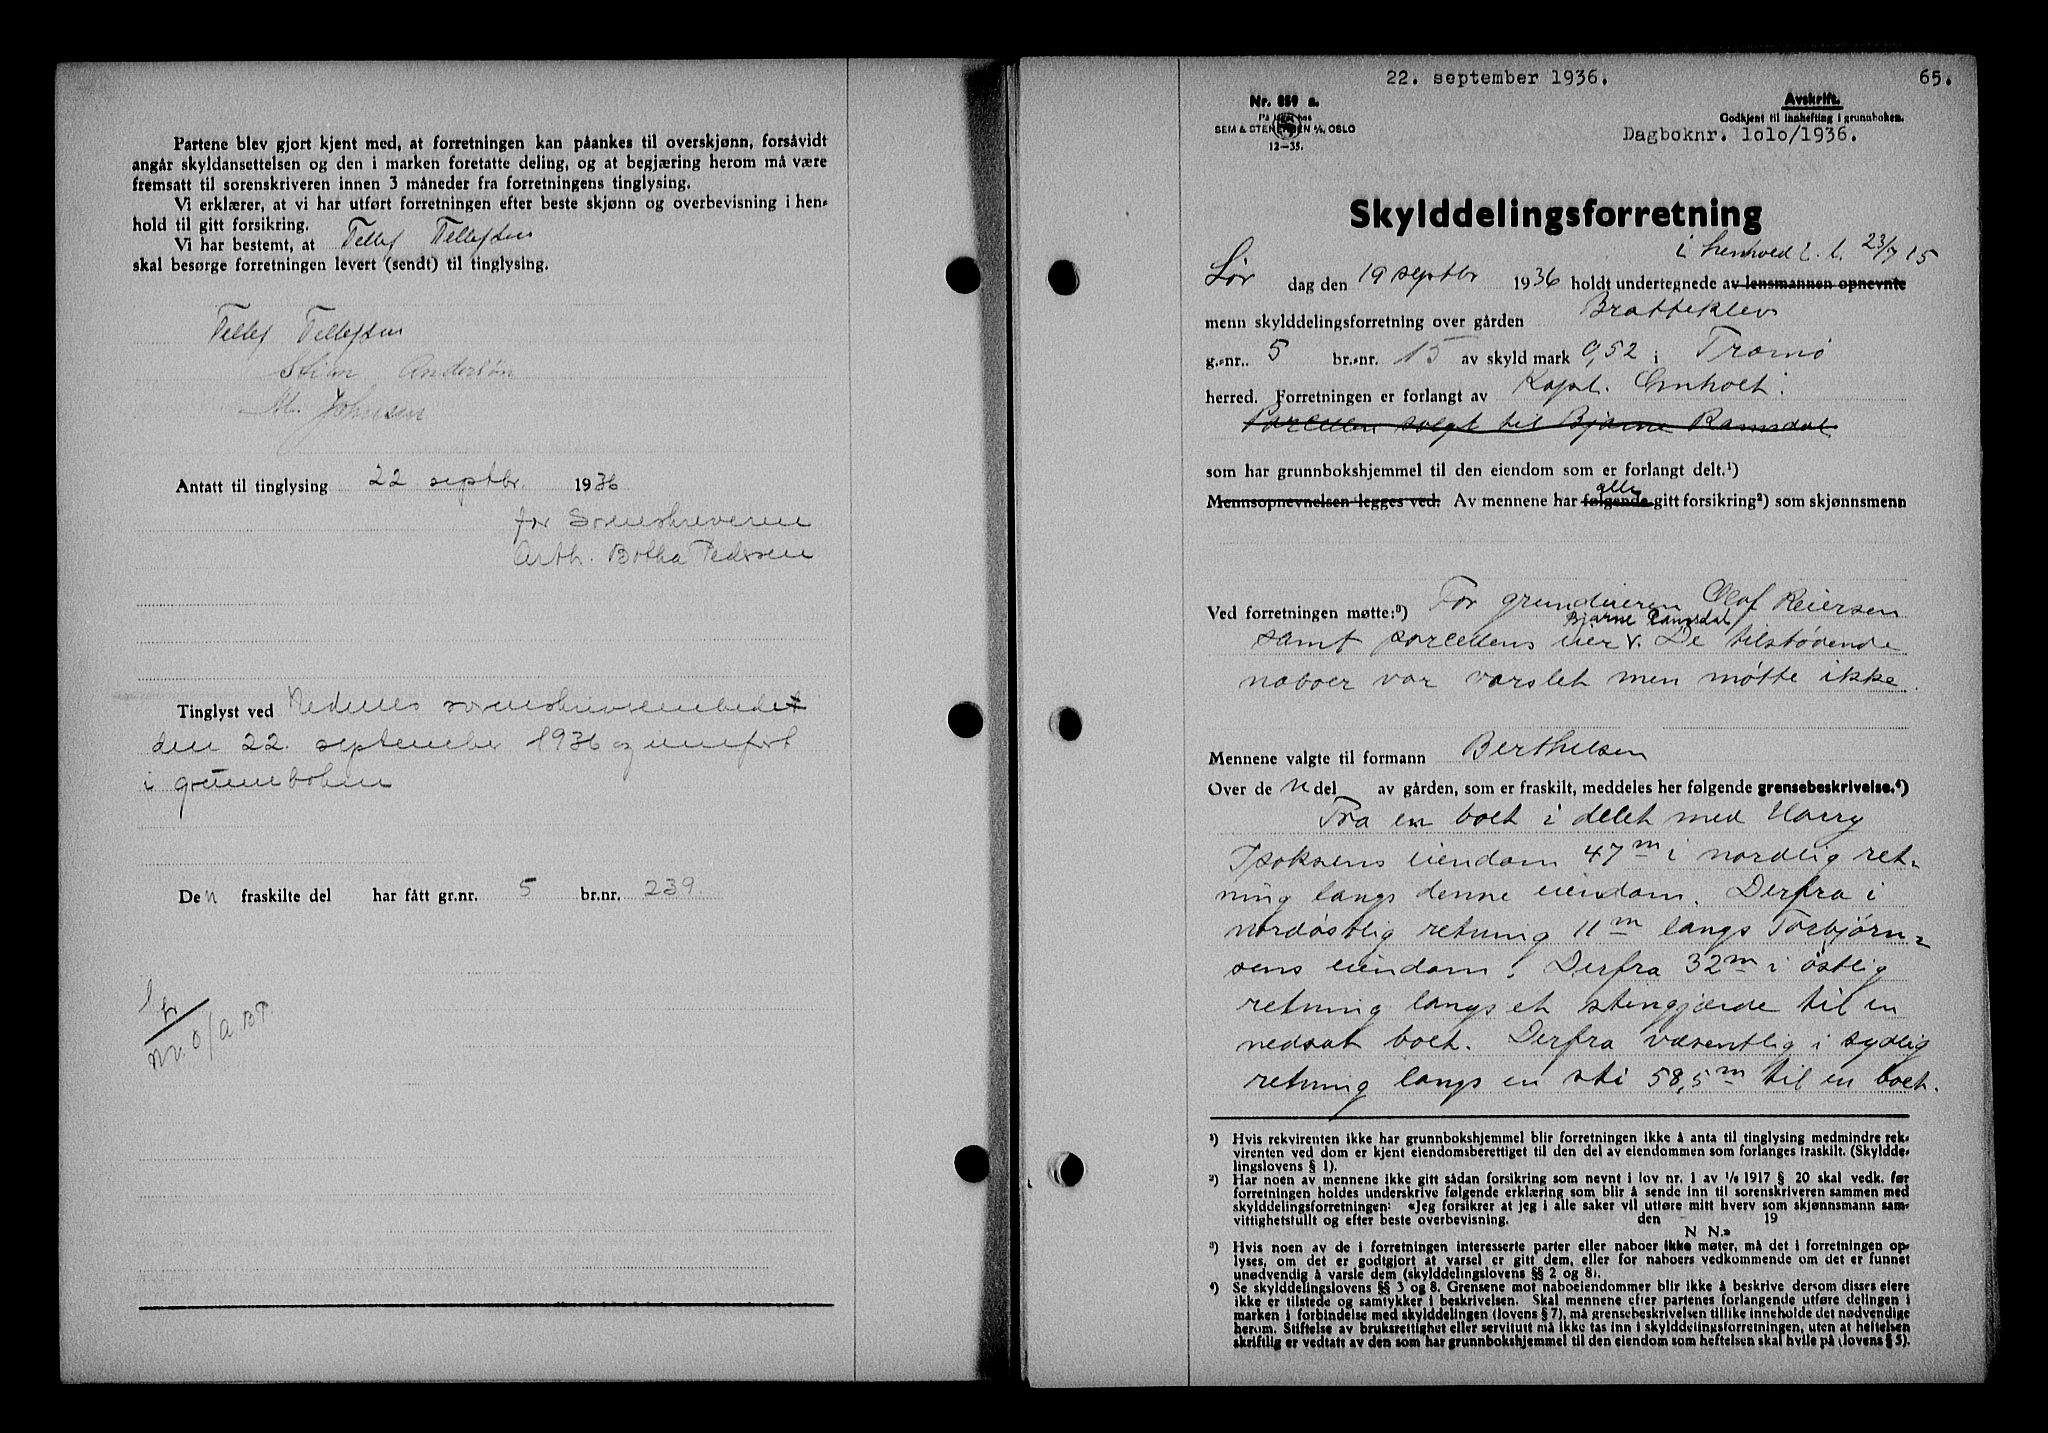 Partene blev gjort kjent med, at forretningen kan påankes til overskjønn, forsåvidt
angår skyldansettelsen og den i marken foretatte deling, og at begjæring herom må være
fremsatt til sorenskriveren innen 3 måneder fra forretningens tinglysing.
Vi erklærer, at vi har utført forretningen efter beste skjønn og overbevisning i hen-
hold til gitt forsikring.
Vi har bestemt, at Tellef Tellefsen
skal besørge forretningen levert (sendt) til tinglysing.
Tellef Tellefsen
Stian Andersøn
M. Johnsen
Antatt til tinglysing 22 septbr. 1936
for Sorenskriveren
Arth. Botha Pedersen
Tinglyst ved Nedenes sorenskriverembedet
den 22. september 1936 og innført
i grunnboken
Den fraskilte del har fått gr.nr. 5 br.nr. 239.
22. september 1936. 65.
Nr. 859 a.
På lager hos
SEM & STENERSEN A/S, OSLO
12-35.
Avskrift.
Godkjent til innhefting i grunnboken.
Dagboknr. 1010/1936.
Skylddelingsforretning
i henhold t. l. 23/7 15
Lør dag den 19 septbr 1936 holdt undertegnede av lensmannen opnevnte
menn skylddelingsforretning over gården Bratteklev
g.-nr. 5 br.-nr. 15 av skyld mark 0,52 i Tromø
herred. Forretningen er forlangt av Kapt. Emholt:
Parcellen solgt til Bjarne Ramsdal
som har grunnbokshjemmel til den eiendom som er forlangt delt.¹)
alle
Mennsopnevnelsen legges ved. Av mennene har følgende gitt forsikring²) som skjønnsmenn
Ved forretningen møtte:³) For grundeieren Olof Reiersen
Bjarne Ramsdal
samt parcellens eier v. De tilstødende
naboer var varslet men møtte ikke.
Mennene valgte til formann Berthelsen
Over de n del av gården, som er fraskilt, meddeles her følgende grensebeskrivelse.⁴)
Fra en bolt i delet med Harry
Isaksens eiendom 47 m i nordlig ret-
ning langs denne eiendom. Derfra i
nordøstlig retning 11 m langs Torbjørn-
sens eiendom. Derfra 32 m i østlig
retning langs et stengjærde til en
nedsat bolt. Derfra væsentlig i sydlig
retning langs en sti 58,5 m til en bolt.
¹) Hvis rekvirenten ikke har grunnbokshjemmel blir forretningen ikke å anta til tinglysing medmindre rek-
virenten ved dom er kjent eiendomsberettiget til den del av eiendommen som forlanges fraskilt. (Skyldde-
lingslovens § 1).
²) Har noen av mennene ikke gitt sådan forsikring som nevnt i lov nr. 1 av 1/6 1917 § 20 skal vedk. før
forretningen holdes underskrive følgende erklæring som blir å sende inn til sorenskriveren sammen med
skylddelingsforretningen: «Jeg forsikrer at jeg i alle saker vil utføre mitt hverv som skjønnsmann sam-
vittighetsfullt og efter beste overbevisning. den 19
N N.»
³) Hvis noen av de i forretningen interesserte parter eller naboer ikke møter, må det i forretningen op-
lyses, om det er godtgjort at varsel er gitt dem, eller for naboers vedkommende om det er funnet
unødvendig å varsle dem (skylddelingslovens §§ 2 og 8).
⁴) Se skylddelingslovens §§ 3 og 8. Grensene mot naboeiendommer blir ikke å beskrive dersom disses eiere
ikke er tilstede og samtykker i beskrivelsen. Skal mennene efter partenes forlangende utføre delingen i
marken i forbindelse med skylddelingen (lovens § 7), må grensebeskrivelsen tillike inneholde det nødvendige
herom. Stiftelse av bruksrettighet eller servitutt må ikke tas inn i skylddelingsforretningen, uten at heftelsen
skriftlig er vedtatt av den som har grunnbokshjemmel til den eiendom som heftelsen skal hvile på (lovens § 5).